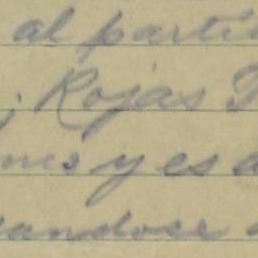 al parti
; Rojas P
nis y es a
andose